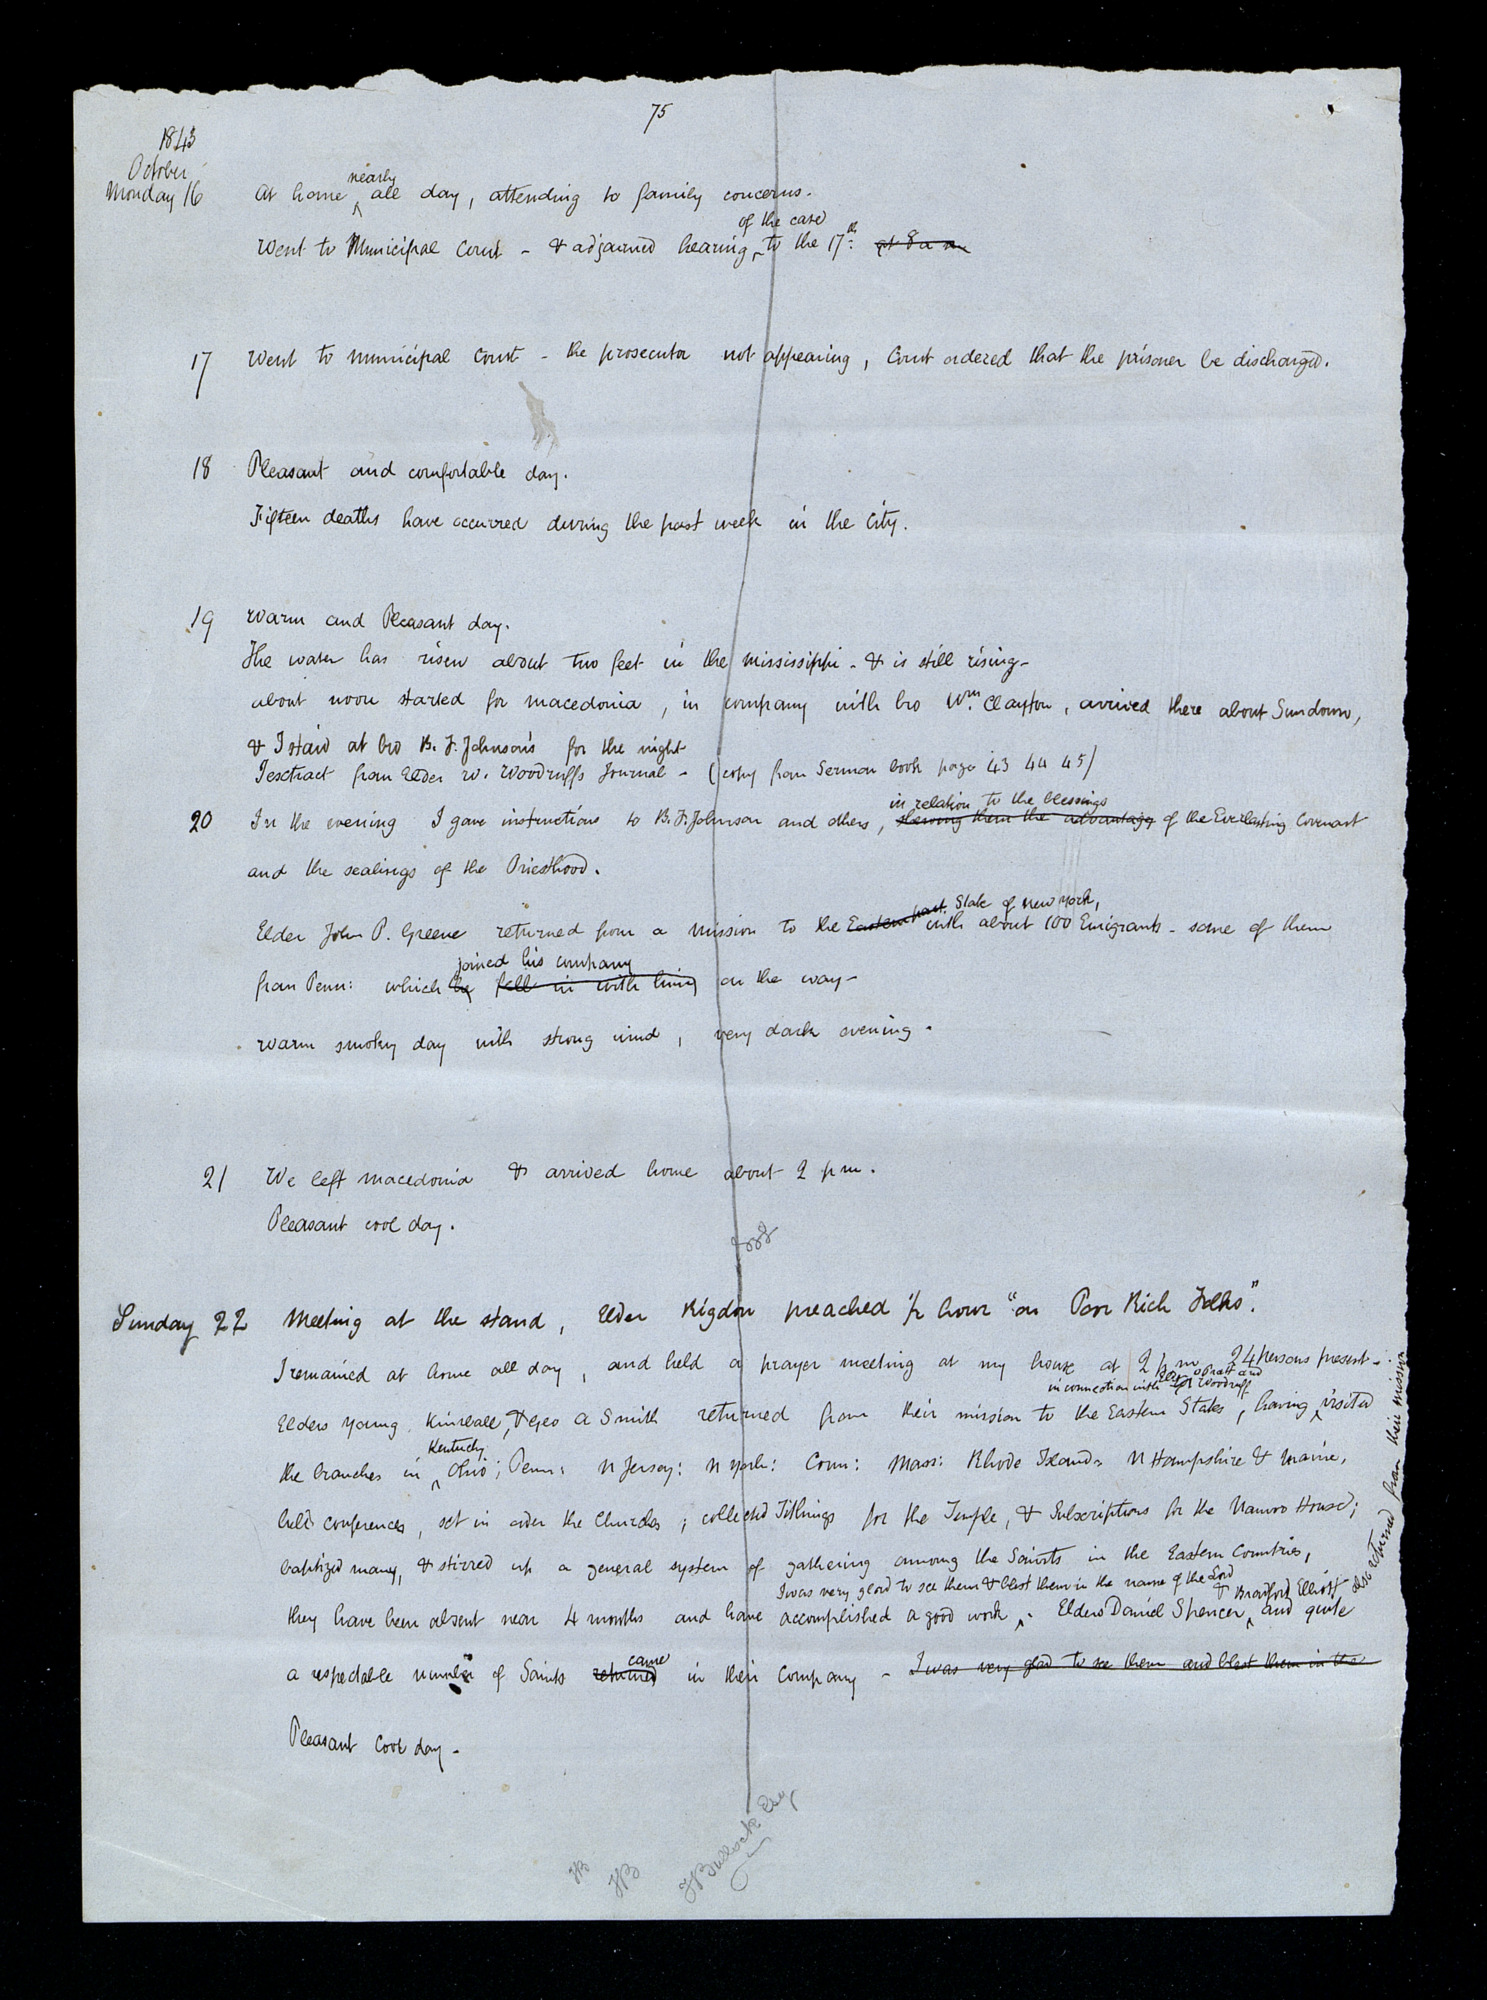 75
1843
October
Monday 16 At home nearly all day, attending to family concerns.
Went to Municipal Court - & adjourned hearing of the case to the 17th. at 8 a m
17 Went to municipal Court - the prosecutor not appearing, Court ordered that the prisoner be discharged.
18 Pleasant and comfortable day.
Fifteen deaths have occurred during the past week in the City.
19 Warm and Pleasant day.
The water has risen about two feet in the Mississippi - & is still rising -
about noon started for macedonia, in company with bro Wm. Clayton, arrived there about Sundown,
& I staid at bro B. F. Johnson's for the night
I extract from Elder W. Woodruffs Journal - (copy from Sermon book page 43 44 45)
20 In the evening I gave instructions to B. F. Johnson and others, in relation to the blessings shewing them the advantages of the Everlasting Covenant
and the sealings of the Priesthood.
Elder John P. Greene returned from a mission to the Eastern part State of New York, with about 100 Emigrants - some of them
from Penn: which he joined his company fell in with him on the way -
warm smoky day with strong wind, very dark evening.
21 We left macedonia & arrived home about 2 p m.
Pleasant cool day.
Sunday 22 Meeting at the stand, Elder Rigdon preached 1/2 hour "on Poor Rich Folks".
I remained at home all day, and held a prayer meeting at my house at 2 p. m 24 persons present -
Elders Young, Kimball, & Geo A Smith returned from their mission to the Eastern States, having in connection with Elders O Pratt and W Woodruff visited
the branches in Kentucky, Ohio; Penn: N Jersey: N York: Conn: Mass: Rhode Island N Hampshire & Maine,
held conferences, set in order the Churches; collected Tithings for the Temple, & Subscriptions for the Nauvoo House;
baptized many, & stirred up a general system of gathering among the Saints in the Eastern Countries,
they have been absent near 4 months and have accomplished a good work, I was very glad to see them & blest them in the name of the Lord. Elders Daniel Spencer & Bradford Elliott also returned from their mission and quite
a respectable number of Saints returned came in their company - I was very glad to see them and blest them in the
Pleasant Cool day -
TB
TB
T Bullock Esq